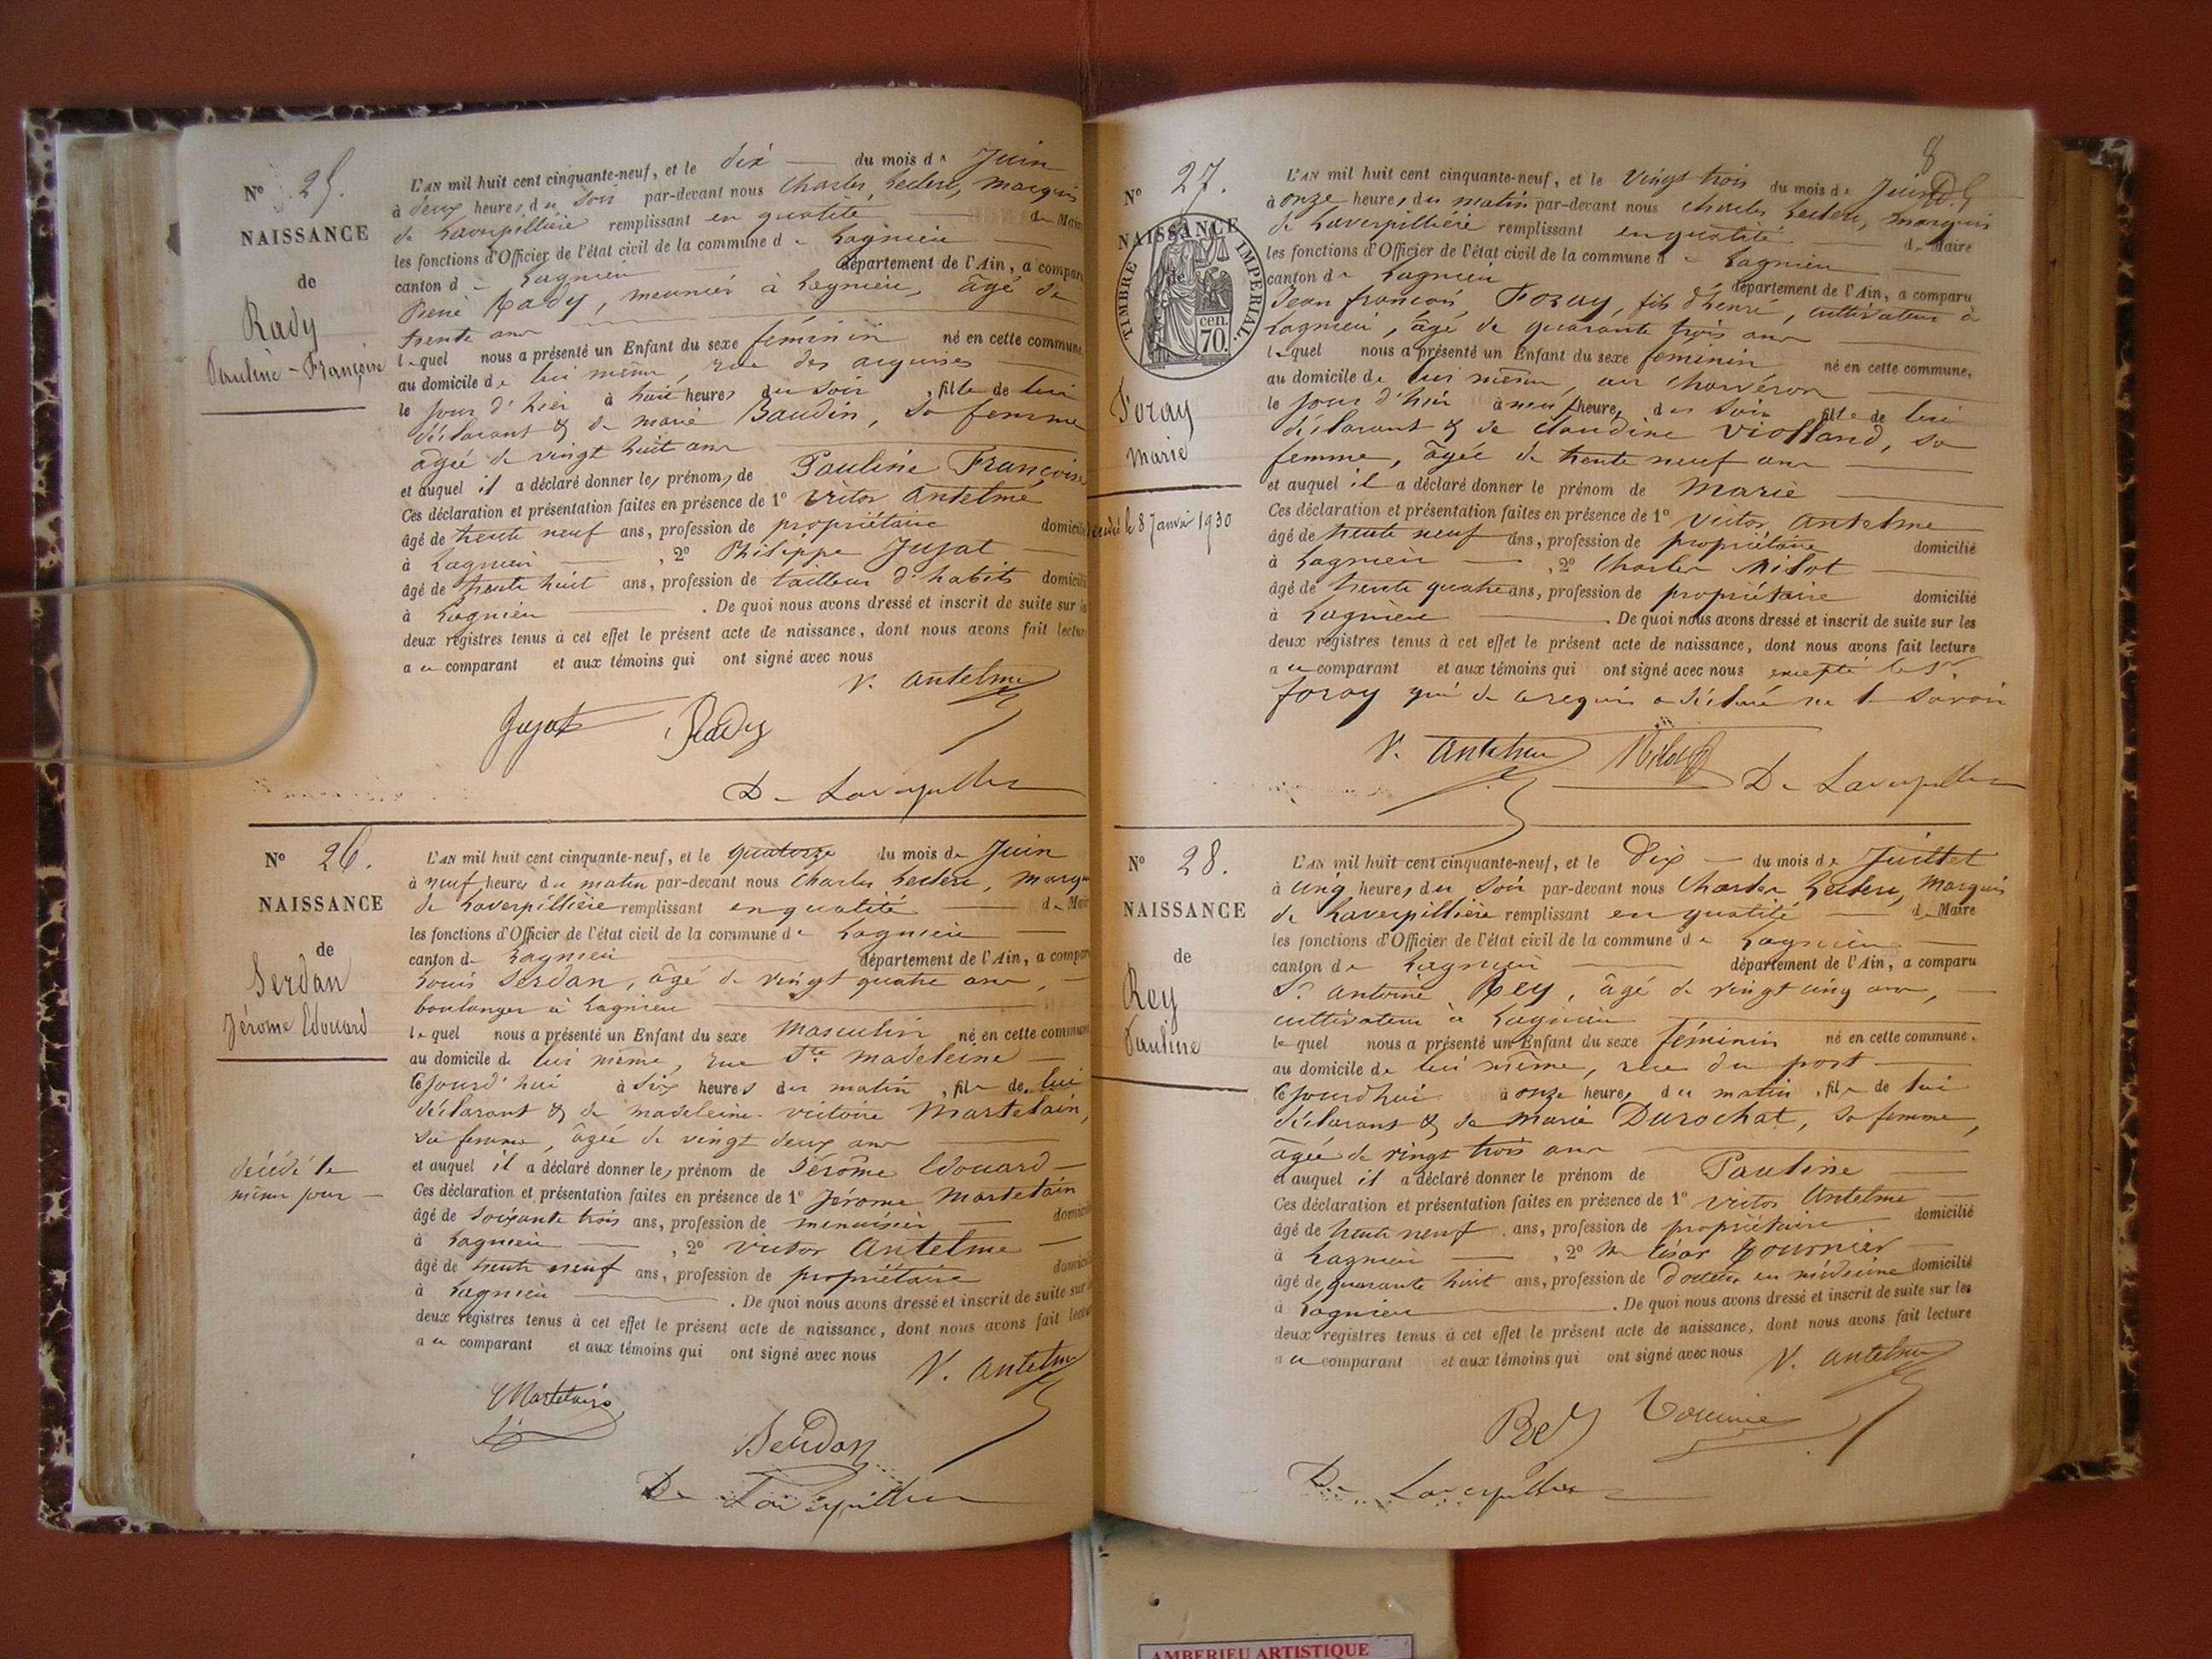 N° 25.
NAISSANCE
de
Rady
Pauline-Françoise
L'AN mil huit cent cinquante-neuf, et le dix — du mois de Juin
à deux heures du soir par-devant nous Charles Leclerc, marquis
de Laverpillière remplissant en qualité — de Maire
les fonctions d'Officier de l'état civil de la commune de Lagnieu —
canton de Lagnieu — département de l'Ain, a comparu
Rady, meunier à Lagnieu, âgé de
trente ans —
lequel nous a présenté un Enfant du sexe féminin né en cette commune,
au domicile de lui même, rue des —
le jour d'hier à huit heures du soir, fille de lui
déclarant & de marie Baudin, sa femme
âgée de vingt huit ans —
et auquel il a déclaré donner les prénoms de Pauline Françoise
Ces déclaration et présentation faites en présence de 1° Victor Antelme
âgé de trente neuf ans, profession de propriétaire domicilié
à Lagnieu —, 2° Philippe Jujat —
âgé de trente huit ans, profession de tailleur d'habits domicilié
à Lagnieu —. De quoi nous avons dressé et inscrit de suite sur les
deux registres tenus à cet effet le présent acte de naissance, dont nous avons fait lecture
a ce comparant et aux témoins qui ont signé avec nous
V. Antelme
Jujat Rady
De Laverpillière
N° 26.
NAISSANCE
de
Serdan
Jérome Edouard
décédé le
même jour —
L'AN mil huit cent cinquante-neuf, et le quatorze du mois de Juin
à neuf heures du matin par-devant nous Charles Leclerc, marquis
de Laverpillière remplissant en qualité — de Maire
les fonctions d'Officier de l'état civil de la commune de Lagnieu —
canton de Lagnieu — département de l'Ain, a comparu
Louis Serdan, âgé de vingt quatre ans, —
boulanger à Lagnieu —
lequel nous a présenté un Enfant du sexe Masculin né en cette commune
au domicile de lui même, rue Ste madeleine —
Cejourd'hui à six heures du matin, fils de lui
déclarant & de madeleine-victoire Martelain,
sa femme, âgée de vingt deux ans —
et auquel il a déclaré donner les prénom de Jérôme Edouard —
Ces déclaration et présentation faites en présence de 1° Jérome Martelain
âgé de soixante trois ans, profession de menuisier — domicilié
à Lagnieu —, 2° Victor Antelme —
âgé de trente neuf ans, profession de propriétaire domicilié
à Lagnieu —. De quoi nous avons dressé et inscrit de suite sur les
deux registres tenus à cet effet le présent acte de naissance, dont nous avons fait lecture
a ce comparant et aux témoins qui ont signé avec nous
V. Antelme
Martelain
Serdan
De Laverpillière
8
N° 27.
NAISSANCE
de
TIMBRE IMPERIAL.
cen.
70.
Foray
Marie
décédé le 8 Janvier 1930
L'AN mil huit cent cinquante-neuf, et le Vingt trois du mois de Juin
à onze heures du matin par-devant nous Charles Leclerc, marquis
de Laverpillière remplissant en qualité — de Maire
les fonctions d'Officier de l'état civil de la commune de Lagnieu —
canton de Lagnieu département de l'Ain, a comparu
Jean françois Foray, fils d'henri, cultivateur à
Lagnieu, âgé de quarante trois ans —
lequel nous a présenté un Enfant du sexe féminin né en cette commune,
au domicile de lui même, au Charvéron —
le jour d'hier à neuf heures du soir fille de lui
déclarant & de Claudine Violland, sa
femme, âgée de trente neuf ans —
et auquel il a déclaré donner le prénom de Marie —
Ces déclaration et présentation faites en présence de 1° Victor Antelme
âgé de trente neuf ans, profession de propriétaire domicilié
à Lagnieu —, 2° Charles Milot —
âgé de trente quatre ans, profession de propriétaire domicilié
à Lagnieu —. De quoi nous avons dressé et inscrit de suite sur les
deux registres tenus à cet effet le présent acte de naissance, dont nous avons fait lecture
a ce comparant et aux témoins qui ont signé avec nous excepté le Sr
foray qui de ce requis a déclaré ne le savoir
V. Antelme Milot De Laverpillière
N° 28.
NAISSANCE
de
Rey
Pauline
L'AN mil huit cent cinquante-neuf, et le Dix — du mois de Juillet
à cinq heures du soir par-devant nous Charles Leclerc, Marquis
de Laverpillière remplissant en qualité — de Maire
les fonctions d'Officier de l'état civil de la commune de Lagnieu —
canton de Lagnieu — département de l'Ain, a comparu
Sr antoine Rey, âgé de vingt cinq ans, —
cultivateur à Lagnieu —
lequel nous a présenté un Enfant du sexe féminin né en cette commune,
au domicile de lui même, rue du port —
Cejourd'hui à onze heures du matin, fille de lui
déclarant & de Marie Durochat, sa femme,
âgée de vingt trois ans —
et auquel il a déclaré donner le prénom de Pauline —
Ces déclaration et présentation faites en présence de 1° Victor Antelme —
âgé de trente neuf ans, profession de propriétaire domicilié
à Lagnieu —, 2° Mr César Tournier —
âgé de quarante huit ans, profession de Docteur en médecine domicilié
à Lagnieu —. De quoi nous avons dressé et inscrit de suite sur les
deux registres tenus à cet effet le présent acte de naissance, dont nous avons fait lecture
a ce comparant et aux témoins qui ont signé avec nous V. Antelme
Rey Tournier
De Laverpillière
AMBERIEU ARTISTIQUE